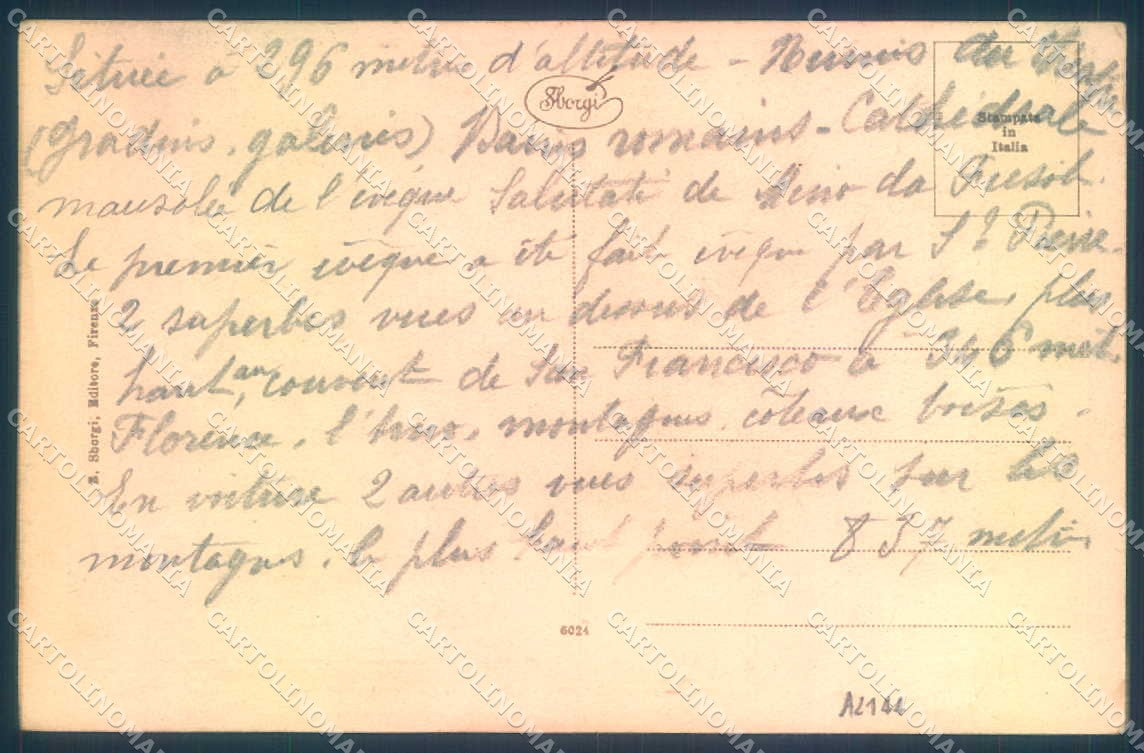 Située à 296 mètres d'altitude - Ruines du
(gradins, galeries) Bains romains - Cathédrale
mausolée de l'évêque Salutati de Mino da Fiesole.
Le premier évêque a été fait évêque par St Pierre.
2 superbes vues au dessus de l'Eglise, plus
haut, au couvent de San Francisco à 346 mèt.
Florence, l'Arno, montagnes, côteaux boisés.
En voiture 2 autres vues superbes sur les
montagnes, le plus haut point 837 mètres
Sborgi
Stampata
in
Italia
E. Sborgi, Editore, Firenze
6024
A2144
CARTOLINOMANIA